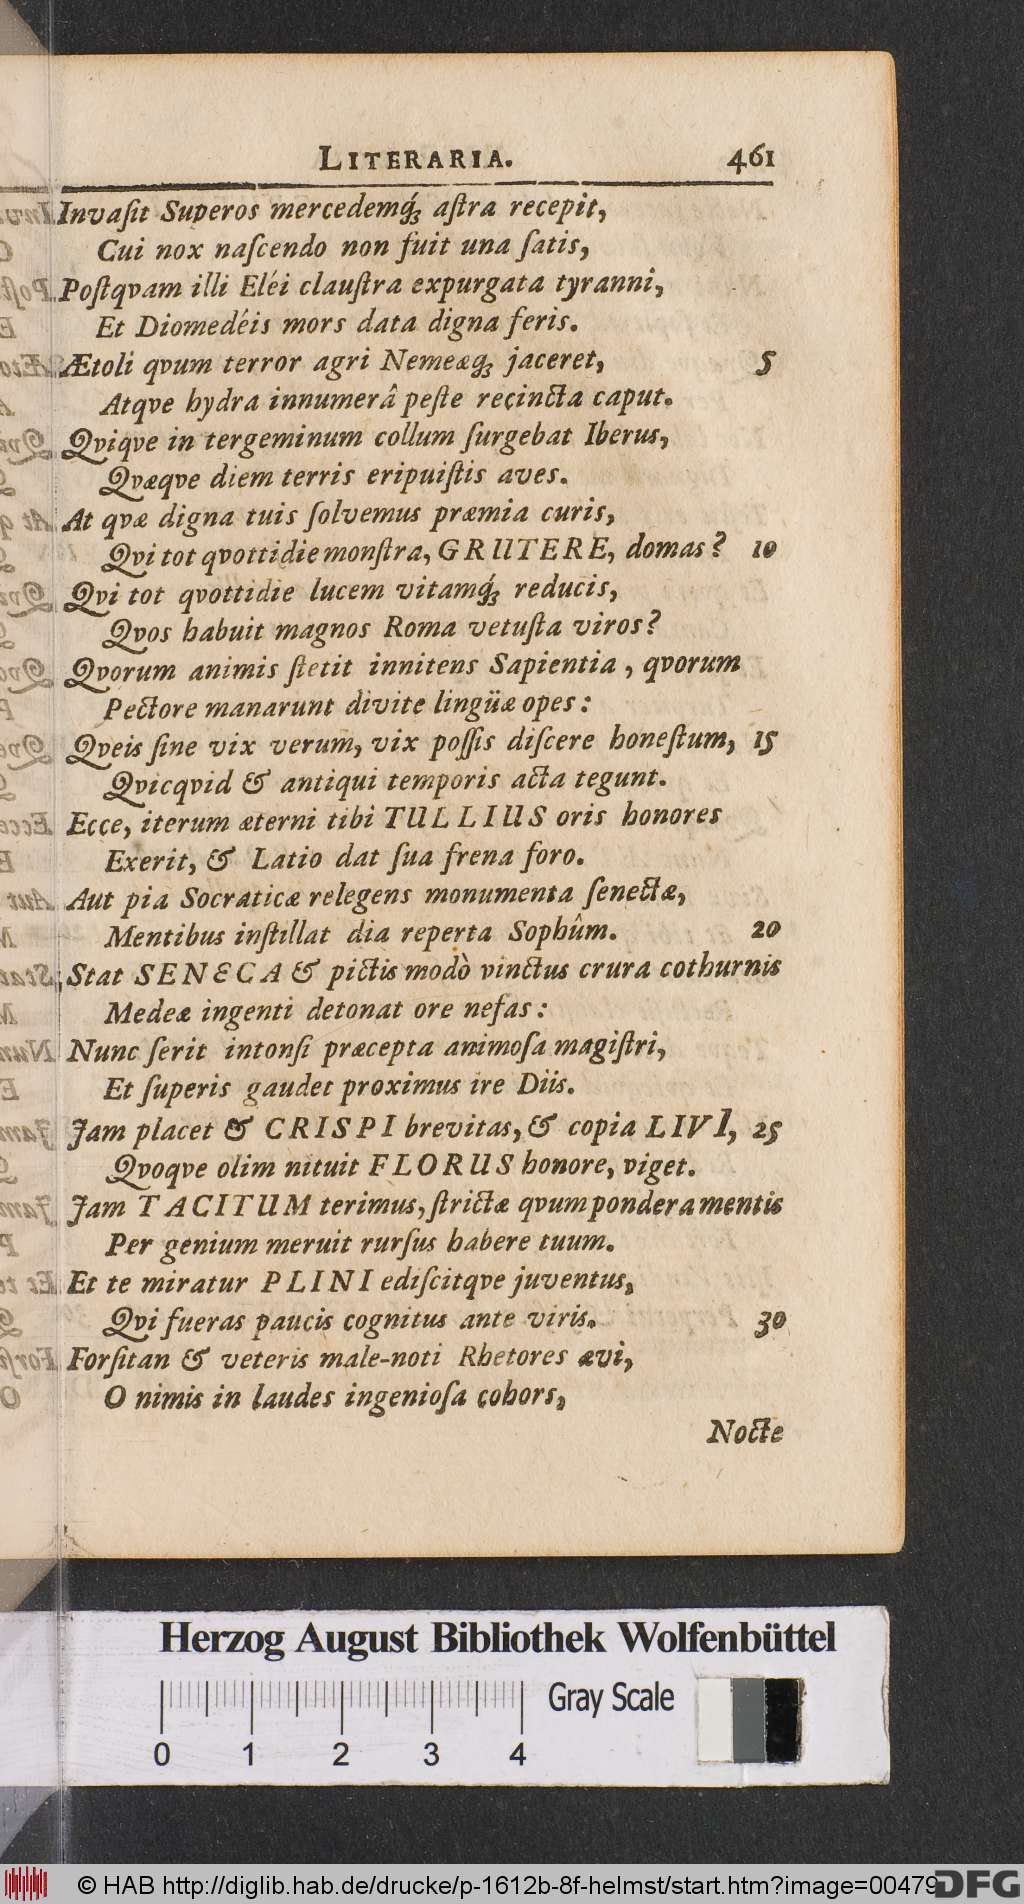 LITERARIA. 461
Invaſit Superos mercedemq́; aſtra recepit,
Cui nox naſcendo non fuit una ſatis,
Poſtqvam illi Eléi clauſtra expurgata tyranni,
Et Diomedéis mors data digna feris.
Ætoli qvum terror agri Nemeæq; jaceret, 5
Atqve hydra innumerâ peſte recincta caput.
Qviqve in tergeminum collum ſurgebat Iberus,
Qvæqve diem terris eripuiſtis aves.
At qvæ digna tuis ſolvemus præmia curis,
Qvi tot qvottidie monſtra, GRUTERE, domas? 10
Qvi tot qvottidie lucem vitamq́; reducis,
Qvos habuit magnos Roma vetuſta viros?
Qvorum animis ſtetit innitens Sapientia, qvorum
Pectore manarunt divite lingüæ opes:
Qveis ſine vix verum, vix poſſis diſcere honeſtum, 15
Qvicqvid & antiqui temporis acta tegunt.
Ecce, iterum æterni tibi TULLIUS oris honores
Exerit, & Latio dat ſua frena foro.
Aut pia Socraticæ relegens monumenta ſenectæ,
Mentibus inſtillat dia reperta Sophûm. 20
Stat SENECA & pictis modò vinctus crura cothurnis
Medeæ ingenti detonat ore nefas:
Nunc ſerit intonſi præcepta animoſa magiſtri,
Et ſuperis gaudet proximus ire Diis.
Jam placet & CRISPI brevitas, & copia LIVI, 25
Qvoqve olim nituit FLORUS honore, viget.
Jam TACITUM terimus, ſtrictæ qvum pondera mentis
Per genium meruit rurſus habere tuum.
Et te miratur PLINI ediſcitqve juventus,
Qvi fueras paucis cognitus ante viris. 30
Forſitan & veteris male-noti Rhetores ævi,
O nimis in laudes ingenioſa cohors,
Nocte
Herzog August Bibliothek Wolfenbüttel
Gray Scale
0 1 2 3 4
© HAB http://diglib.hab.de/drucke/p-1612b-8f-helmst/start.htm?image=00479
DFG